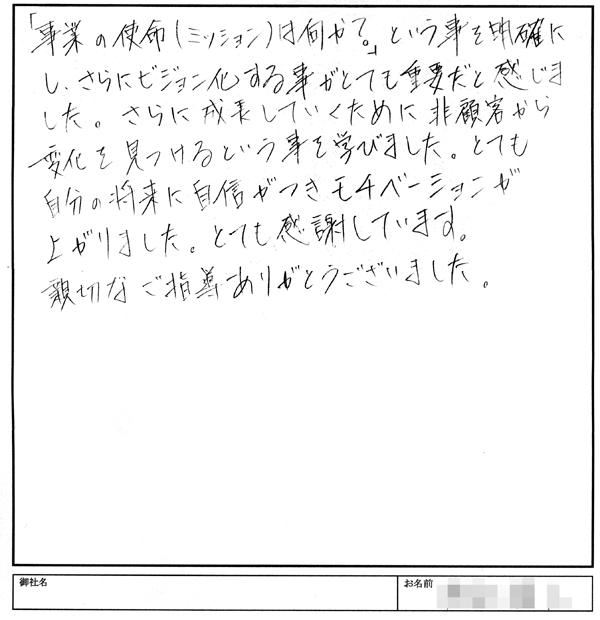 「事業の使命(ミッション)は何か?。」という事を明確に
し、さらにビジョン化する事がとても重要だと感じま
した。さらに成長していくために非顧客から
変化を見つけるという事を学びました。とても
自分の将来に自信がつきモチベーションが
上がりました。とても感謝しています。
親切なご指導ありがとうございました。
御社名
お名前